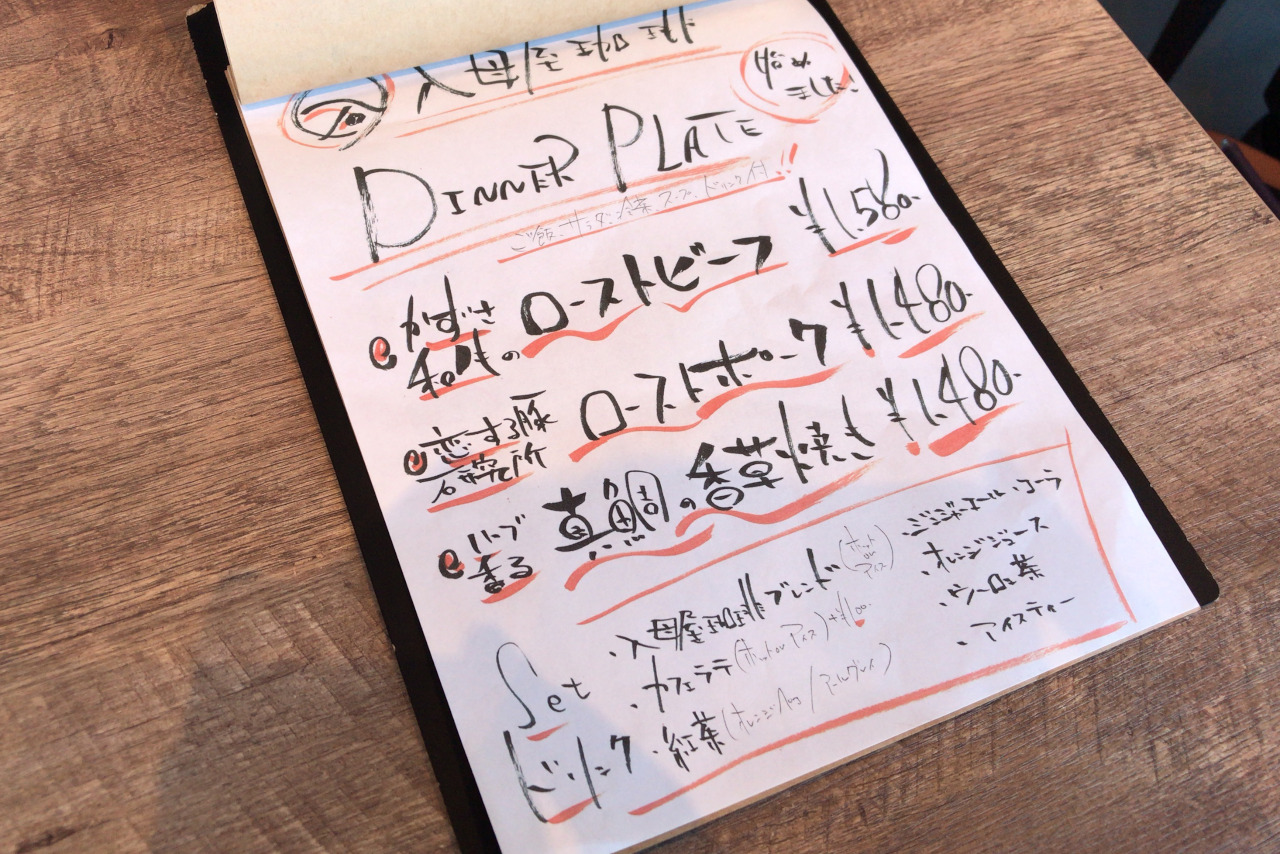 入母屋珈琲
始め
ました!
DINNER PLATE
ご飯、サラダ、冷菜、スープ、ドリンク付!!
かずさ
和牛の
ローストビーフ ¥1,580-
恋する豚
研究所
ローストポーク ¥1,480-
ハーブ
香る
真鯛の香草焼き ¥1,480-
Set
ドリンク
・入母屋珈琲ブレンド(ホット or アイス)
・カフェラテ(ホット or アイス)+¥100-
・紅茶(オレンジペコ / アールグレイ)
・ジンジャーエール・コーラ
・オレンジジュース
・ウーロン茶
・アイスティー